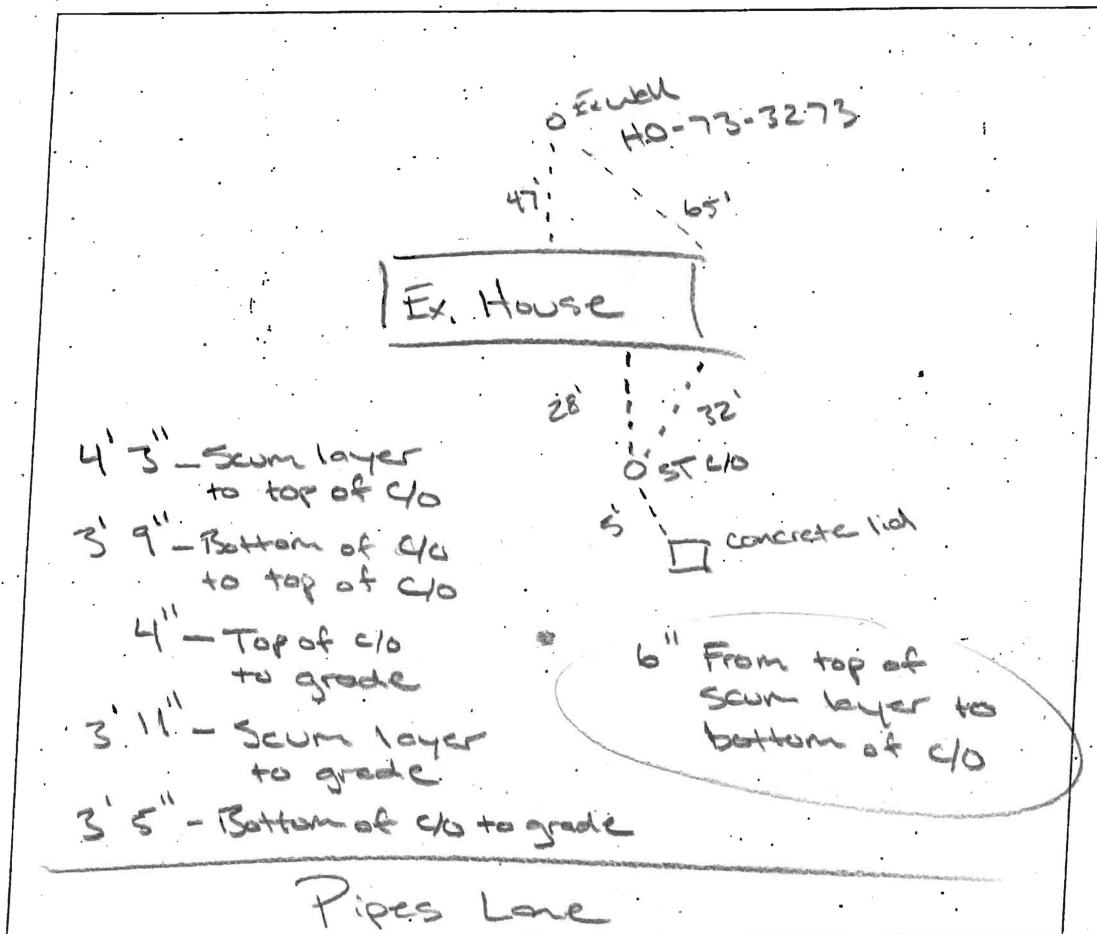 Ex well
HO-73-3273
47'
65'
Ex. House
28'
32'
ST C/O
5'
concrete lid
4' 3" - Scum layer
to top of C/O
3' 9" - Bottom of C/O
to top of C/O
4" - Top of c/o
to grade
3' 11" - Scum layer
to grade
3' 5" - Bottom of C/O to grade
6" From top of
scum layer to
bottom of C/O
Pipes Lane